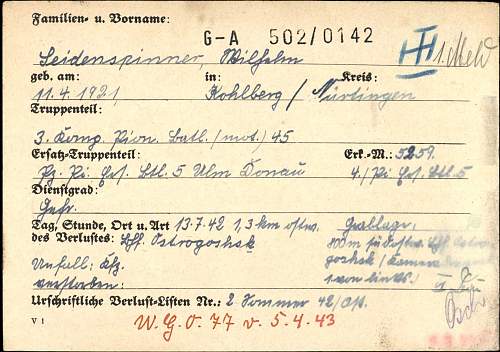 Familien- u. Vorname:
G-A 502/0142
Seidenspinner, Wilhelm
1. Meld
geb. am: in: Kreis:
11.4.1921 Kohlberg / Nürtingen
Truppenteil:
3. Komp. Pion. Batl. (mot.) 45
Ersatz-Truppenteil: Erk.-M.: 5259
Pz. Pi. Ers. Btl. 5 Ulm Donau 4./Pi Ers. Btl. 5
Dienstgrad:
Gefr.
Tag, Stunde, Ort u. Art 13.7.42 1,3 km ostw. Grablage:
des Verlustes: Bhf. Ostrogoshsk 800m südostw. Bhf. Ostro-
goshsk / Kameradengrab
Unfall: Kfz. 1. von links.
verstorben:
Urschriftliche Verlust-Listen Nr.: 2 Sommer 42/
V 1
W.G.O. 77 v. 5.4.43